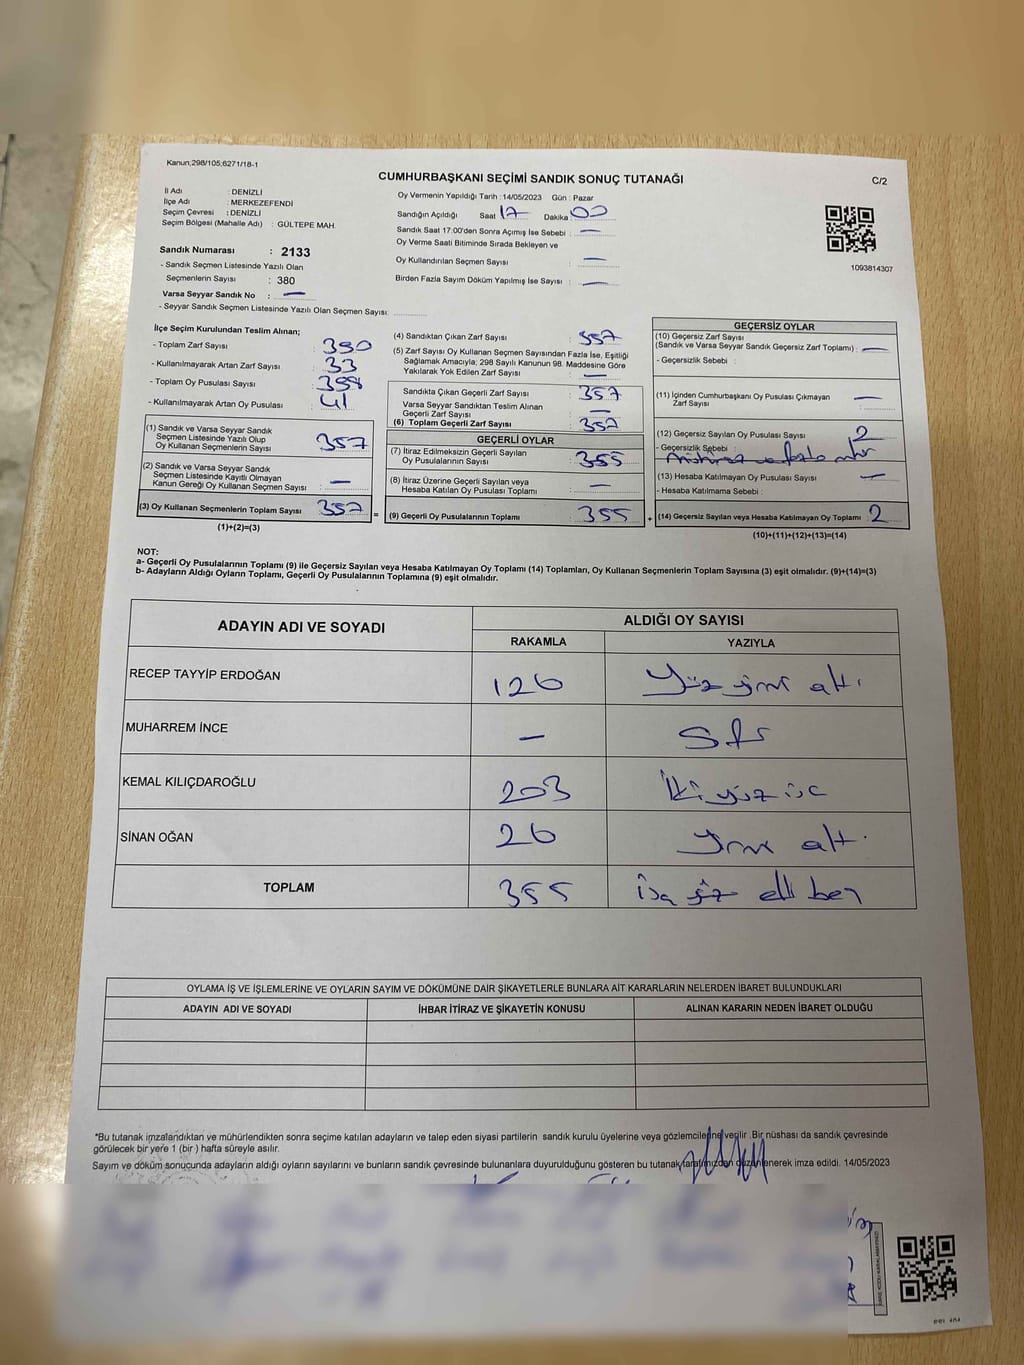 Kanun;298/105;6271/18-1
CUMHURBAŞKANI SEÇİMİ SANDIK SONUÇ TUTANAĞI
C/2
İl Adı : DENİZLİ
İlçe Adı : MERKEZEFENDİ
Seçim Çevresi : DENİZLİ
Seçim Bölgesi (Mahalle Adı) : GÜLTEPE MAH.
Sandık Numarası : 2133
- Sandık Seçmen Listesinde Yazılı Olan
Seçmenlerin Sayısı : 380
Varsa Seyyar Sandık No : —
- Seyyar Sandık Seçmen Listesinde Yazılı Olan Seçmen Sayısı:
Oy Vermenin Yapıldığı Tarih : 14/05/2023 Gün : Pazar
Sandığın Açıldığı Saat 17 Dakika 00
Sandık Saat 17:00'den Sonra Açımış İse Sebebi : —
Oy Verme Saati Bitiminde Sırada Bekleyen ve
Oy Kullandırılan Seçmen Sayısı : —
Birden Fazla Sayım Döküm Yapılmış İse Sayısı : —
1093814307
İlçe Seçim Kurulundan Teslim Alınan;
- Toplam Zarf Sayısı : 390
- Kullanılmayarak Artan Zarf Sayısı : 33
- Toplam Oy Pusulası Sayısı : 398
- Kullanılmayarak Artan Oy Pusulası : 41
(1) Sandık ve Varsa Seyyar Sandık
Seçmen Listesinde Yazılı Olup
Oy Kullanan Seçmenlerin Sayısı : 357
(2) Sandık ve Varsa Seyyar Sandık
Seçmen Listesinde Kayıtlı Olmayan
Kanun Gereği Oy Kullanan Seçmen Sayısı : —
(3) Oy Kullanan Seçmenlerin Toplam Sayısı : 357
(1)+(2)=(3)
=
(4) Sandıktan Çıkan Zarf Sayısı : 357
(5) Zarf Sayısı Oy Kullanan Seçmen Sayısından Fazla İse, Eşitliği
Sağlamak Amacıyla; 298 Sayılı Kanunun 98. Maddesine Göre
Yakılarak Yok Edilen Zarf Sayısı : —
Sandıkta Çıkan Geçerli Zarf Sayısı : 357
Varsa Seyyar Sandıktan Teslim Alınan
Geçerli Zarf Sayısı : —
(6) Toplam Geçerli Zarf Sayısı : 357
GEÇERLİ OYLAR
(7) İtiraz Edilmeksizin Geçerli Sayılan
Oy Pusulalarının Sayısı : 355
(8) İtiraz Üzerine Geçerli Sayılan veya
Hesaba Katılan Oy Pusulası Toplamı : —
(9) Geçerli Oy Pusulalarının Toplamı : 355
+
GEÇERSİZ OYLAR
(10) Geçersiz Zarf Sayısı
(Sandık ve Varsa Seyyar Sandık Geçersiz Zarf Toplamı) : —
- Geçersizlik Sebebi :
(11) İçinden Cumhurbaşkanı Oy Pusulası Çıkmayan
Zarf Sayısı : —
(12) Geçersiz Sayılan Oy Pusulası Sayısı : 2
- Geçersizlik Sebebi :
(13) Hesaba Katılmayan Oy Pusulası Sayısı : —
- Hesaba Katılmama Sebebi :
(14) Geçersiz Sayılan veya Hesaba Katılmayan Oy Toplamı : 2
(10)+(11)+(12)+(13)=(14)
NOT:
a- Geçerli Oy Pusulalarının Toplamı (9) ile Geçersiz Sayılan veya Hesaba Katılmayan Oy Toplamı (14) Toplamları, Oy Kullanan Seçmenlerin Toplam Sayısına (3) eşit olmalıdır. (9)+(14)=(3)
b- Adayların Aldığı Oyların Toplamı, Geçerli Oy Pusulalarının Toplamına (9) eşit olmalıdır.
ADAYIN ADI VE SOYADI
ALDIĞI OY SAYISI
RAKAMLA YAZIYLA
RECEP TAYYİP ERDOĞAN 126 Yüz yirmi altı
MUHARREM İNCE — Sıfır
KEMAL KILIÇDAROĞLU 203 İki yüz üç
SİNAN OĞAN 26 Yirmi altı
TOPLAM 355 elli beş
OYLAMA İŞ VE İŞLEMLERİNE VE OYLARIN SAYIM VE DÖKÜMÜNE DAİR ŞİKAYETLERLE BUNLARA AİT KARARLARIN NELERDEN İBARET BULUNDUKLARI
ADAYIN ADI VE SOYADI İHBAR İTİRAZ VE ŞİKAYETİN KONUSU ALINAN KARARIN NEDEN İBARET OLDUĞU
*Bu tutanak imzalandıktan ve mühürlendikten sonra seçime katılan adayların ve talep eden siyasi partilerin sandık kurulu üyelerine veya gözlemcilerine verilir .Bir nüshası da sandık çevresinde
görülecek bir yere 1 (bir ) hafta süreyle asılır.
Sayım ve döküm sonucunda adayların aldığı oyların sayılarını ve bunların sandık çevresinde bulunanlara duyurulduğunu gösteren bu tutanak tarafımızdan düzenlenerek imza edildi. 14/05/2023